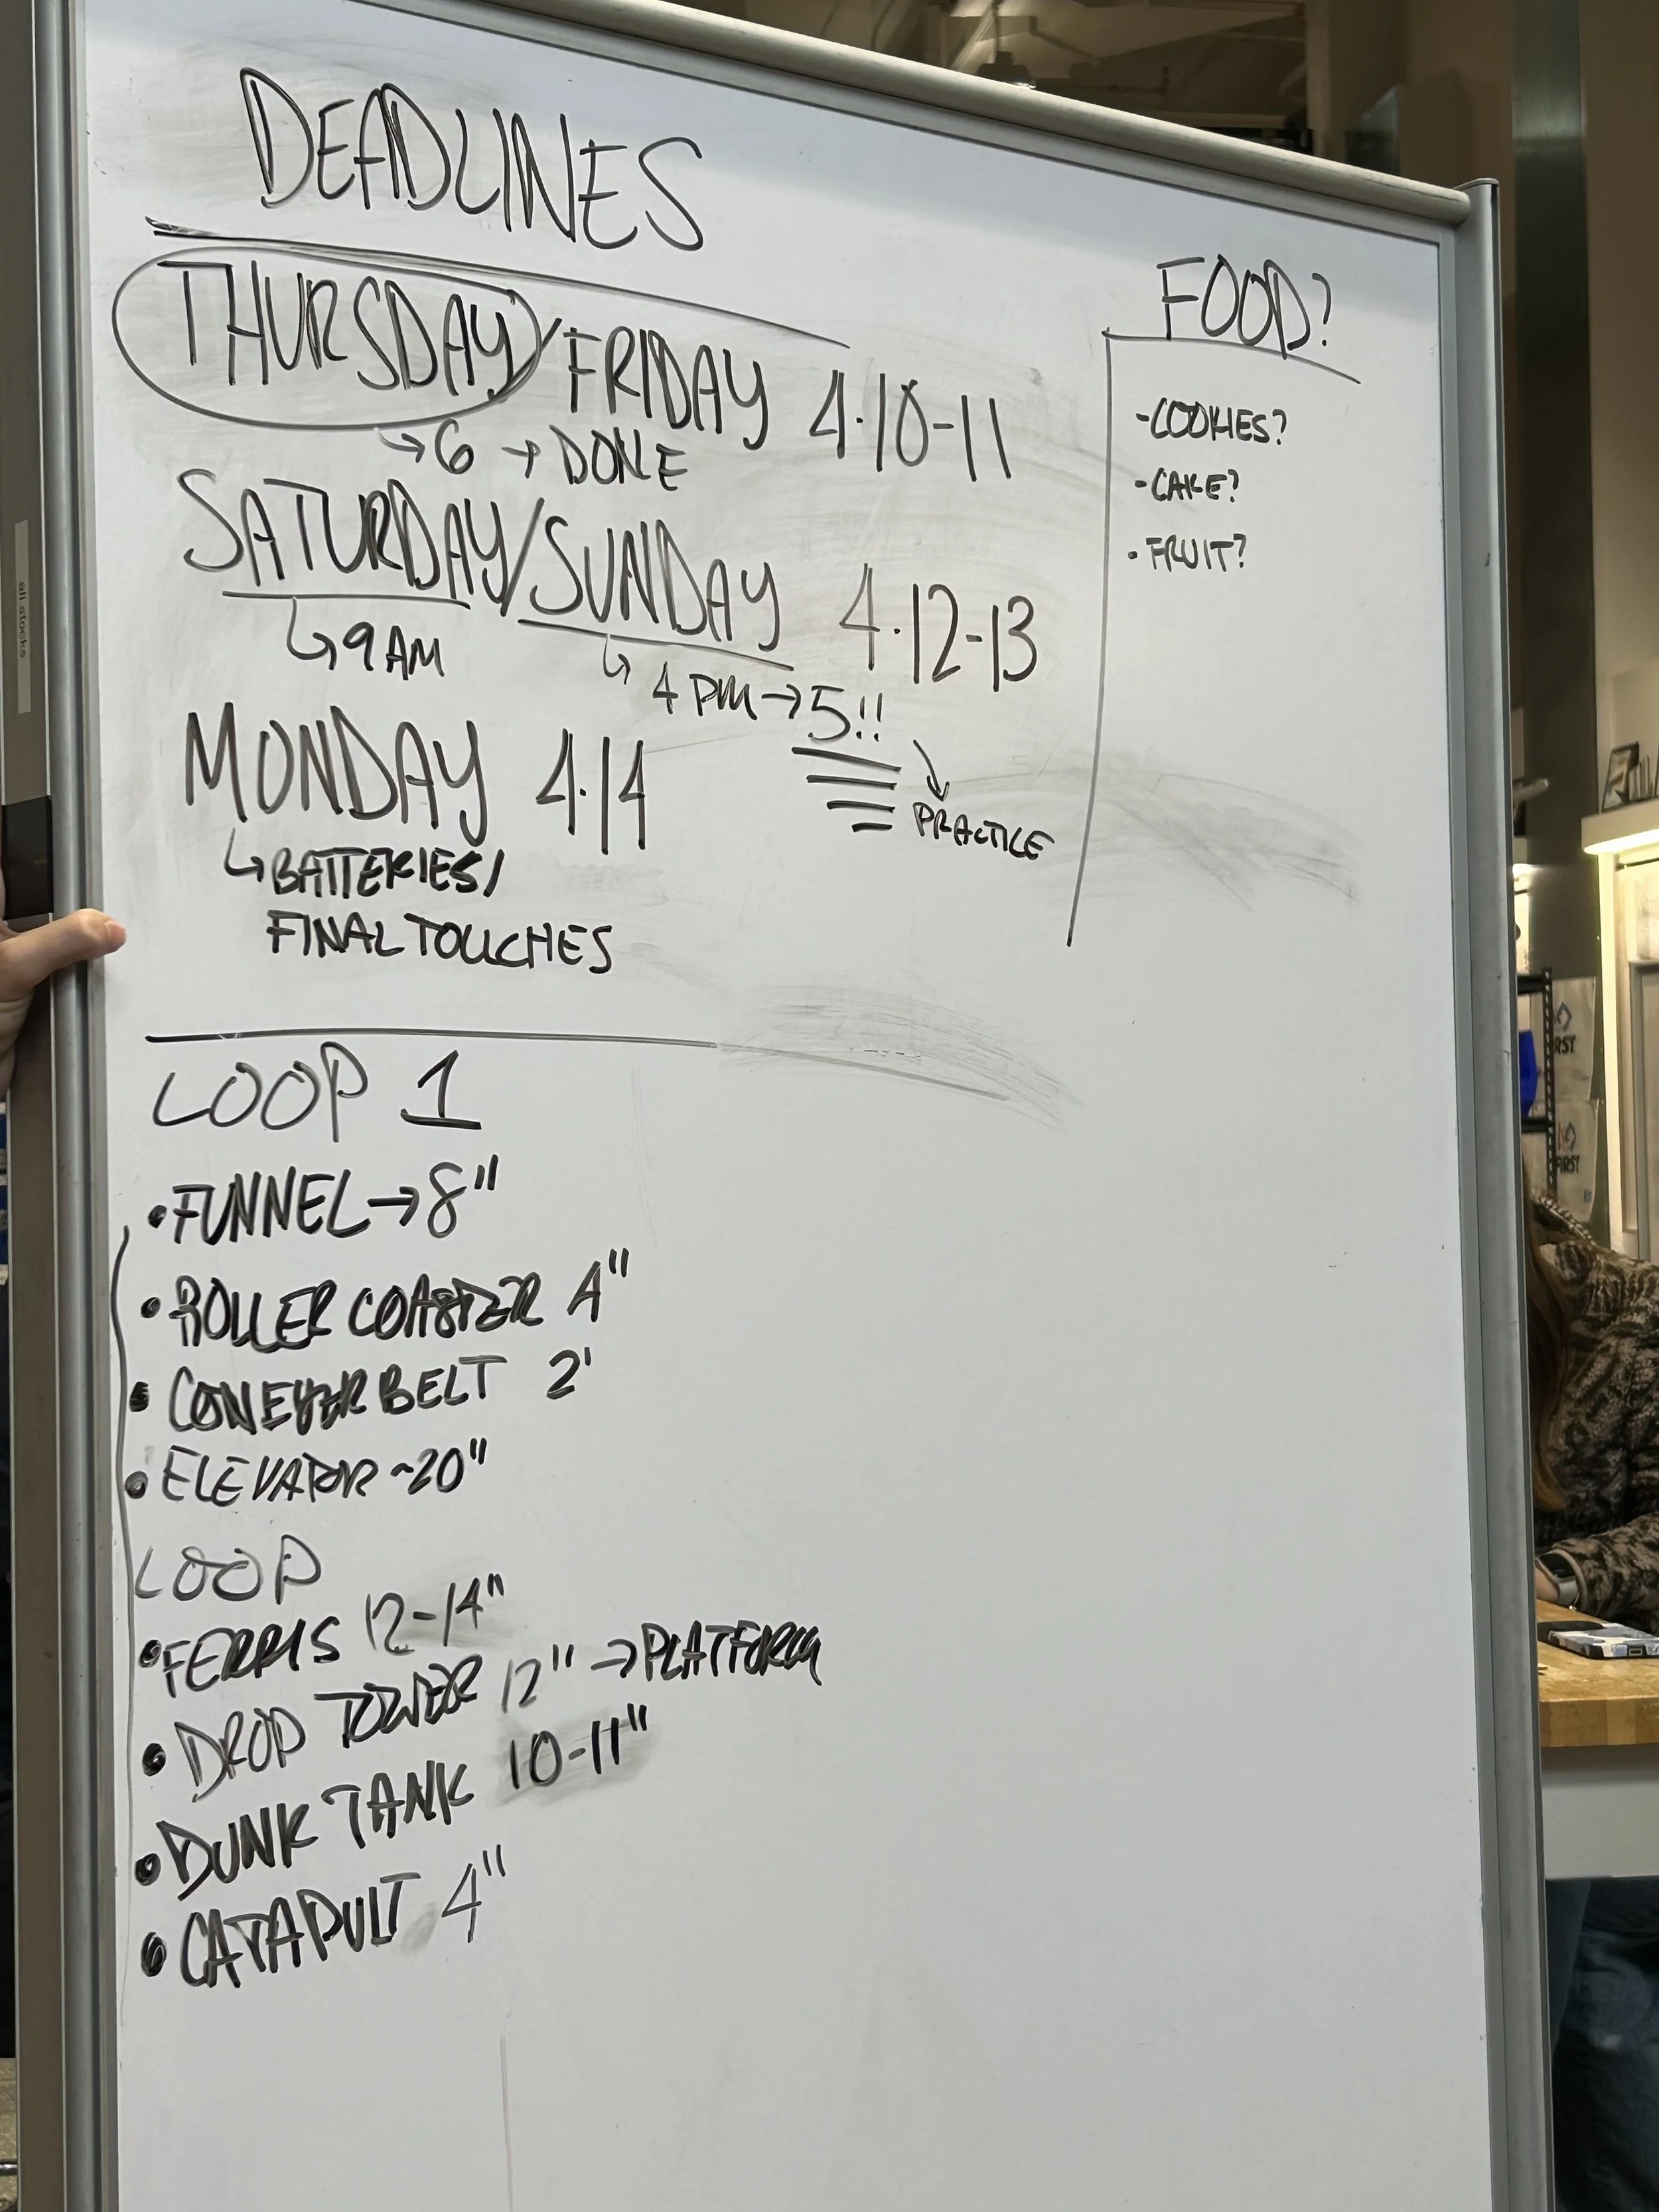 DEADLINES
THURSDAY/FRIDAY 4·10-11
→6 → DONE
SATURDAY/SUNDAY 4·12-13
↳9 AM
↳ 4 PM→5!!
PRACTICE
MONDAY 4·14
↳BATTERIES/
FINAL TOUCHES
FOOD?
-COOKIES?
-CAKE?
·FRUIT?
LOOP 1
•FUNNEL→8"
•ROLLER COASTER 4"
•CONEYER BELT 2'
•ELEVATOR ~20"
LOOP
•FERRIS 12-14"
•DROP TOWER 12" →PLATFORM
•DUNK TANK 10-11"
•CATAPULT 4"
all stocks
RST